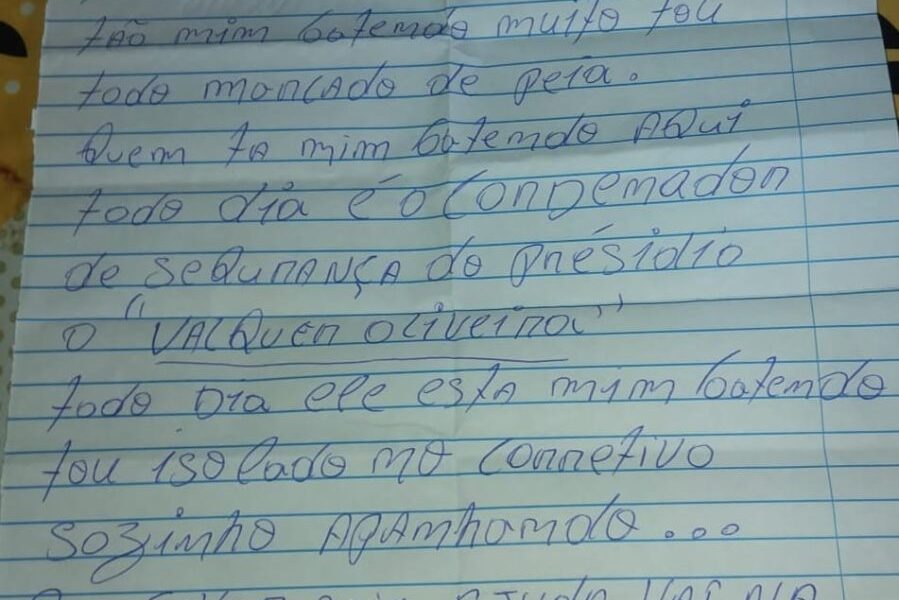 tão mim batendo muito tou
todo marcado de peia.
Quem ta mim batendo AQui
todo dia é o Condenador
de seQuranÇA do présidio
o "VALQuer oliveira"
todo Dia ele esta mim batendo
tou isolado no corretivo
sozinho Apanhando...